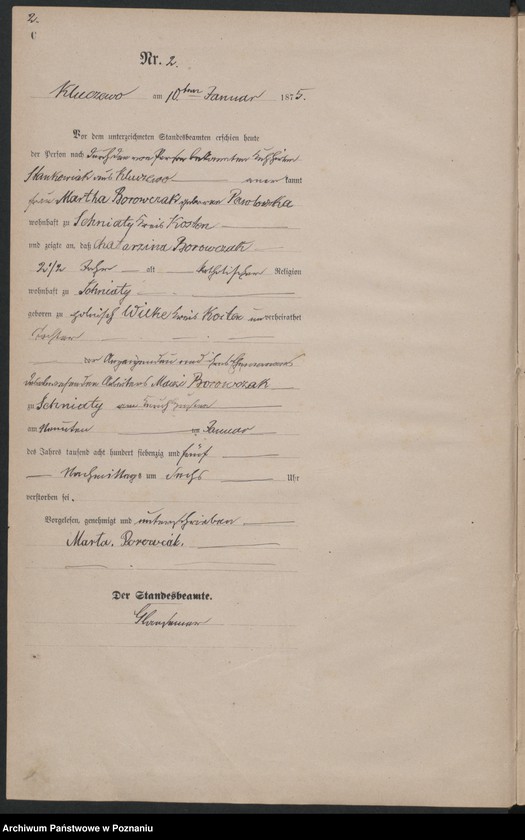 2.
C
Nr. 2.
Kluczewo am 10ten Januar 1875.
Vor dem unterzeichneten Standesbeamten erschien heute
der Person nach durch den von Person bekannten
Stankowiak aus Kluczewo anerkannt
Frau Martha Borowczak geborene Pawlowska
wohnhaft zu Schniaty Kreis Kosten
und zeigte an, daß Catarzina Borowczak
2 1/2 Jahr alt katholischer Religion
wohnhaft zu Schniaty
geboren zu polnisch Wilke Kreis Kosten unverheirathet
Tochter
der Anzeigenden und ihres Ehemannes
Borowczak
zu Schniaty
am Neunten Januar
des Jahres tausend acht hundert siebenzig und fünf
Nachmittags um sechs Uhr
verstorben sei.
Vorgelesen, genehmigt und unterschrieben
Marta. Borowciak.
Der Standesbeamte.
Archiwum Państwowe w Poznaniu